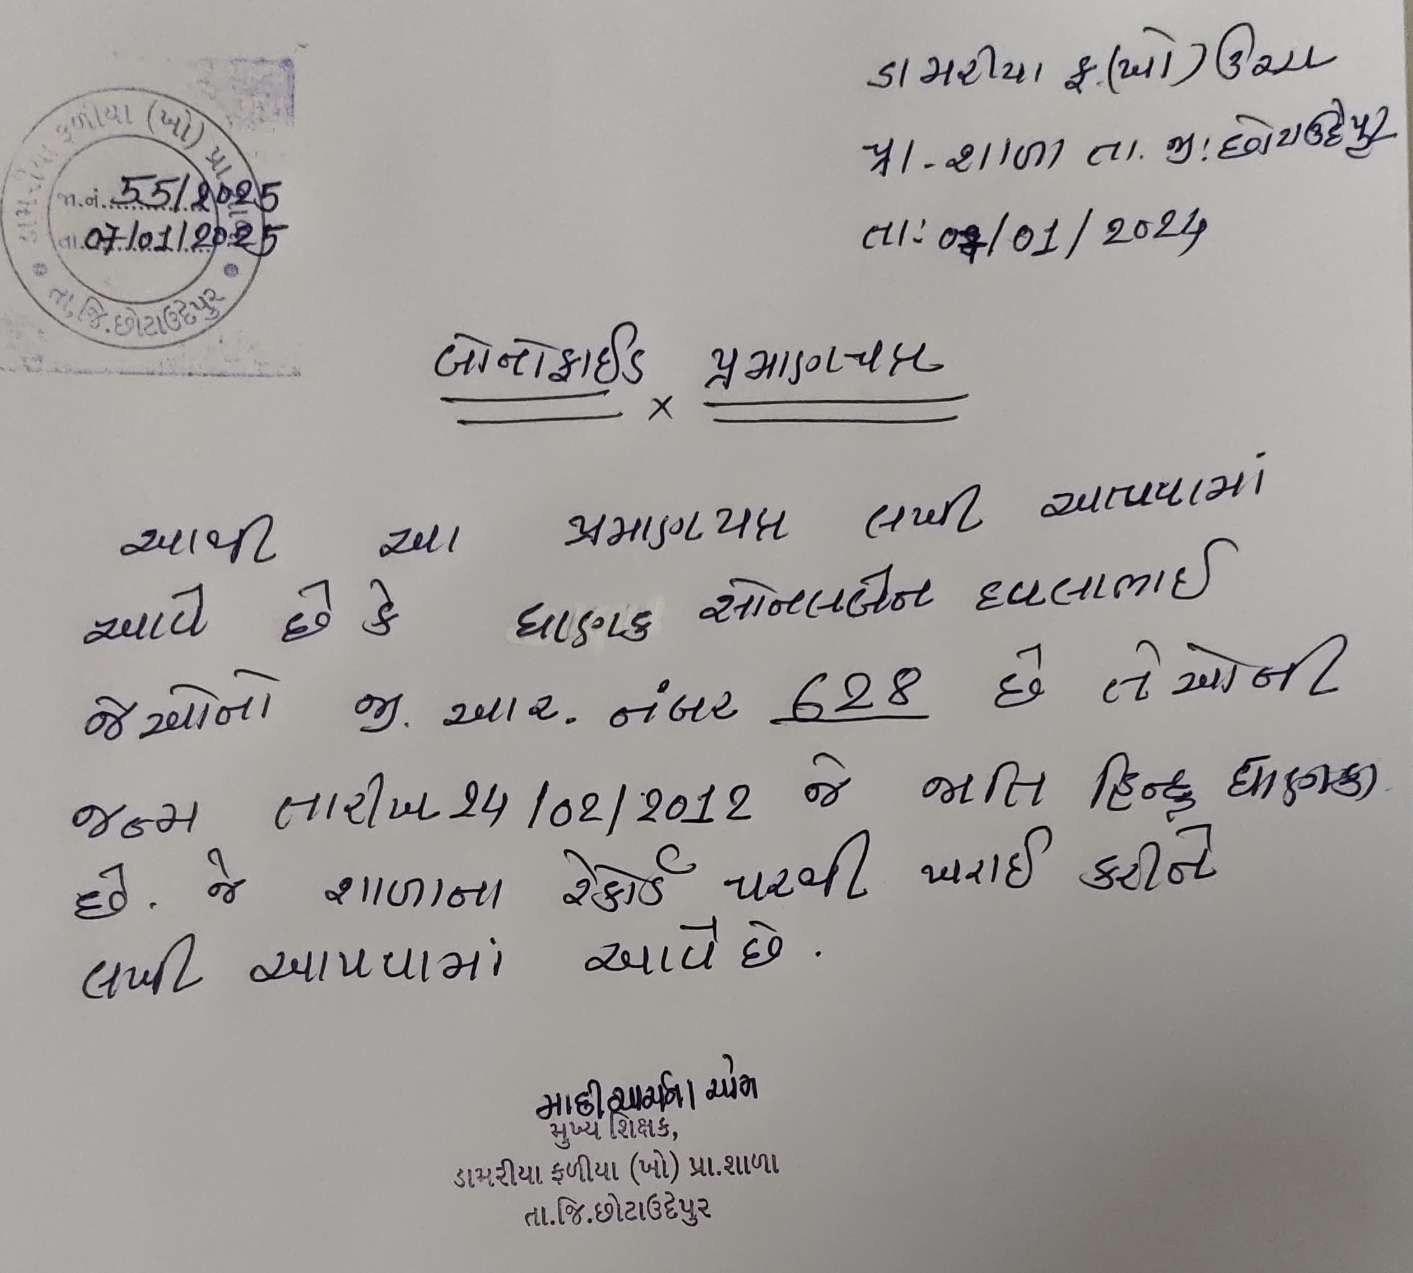 ડામરીયા ફ.(ખો)
પ્રા.શાળા તા.જી:છોટાઉદેપુર
ડામરીયા ફળીયા (ખો) પ્રા.શાળા
જા.નં. 55/2025
તા. 07/01/2025
તા.જિ.છોટાઉદેપુર
તા: 07/01/2025
બોનોફાઈડ x પ્રમાણપત્ર
આથી આ પ્રમાણપત્ર લખી આપવામાં
આવે છે કે ધાણક સોનલબેન દવલાભાઈ
જેઓનો જી. આર. નંબર 628 છે તેઓની
જન્મ તારીખ 24/02/2012 જે જાતિ હિન્દુ ધાણકા
છે. જે શાળાના રેકોર્ડ પરથી ખરાઈ કરીને
લખી આપવામાં આવે છે.
મુખ્ય શિક્ષક,
ડામરીયા ફળીયા (ખો) પ્રા.શાળા
તા.જિ.છોટાઉદેપુર